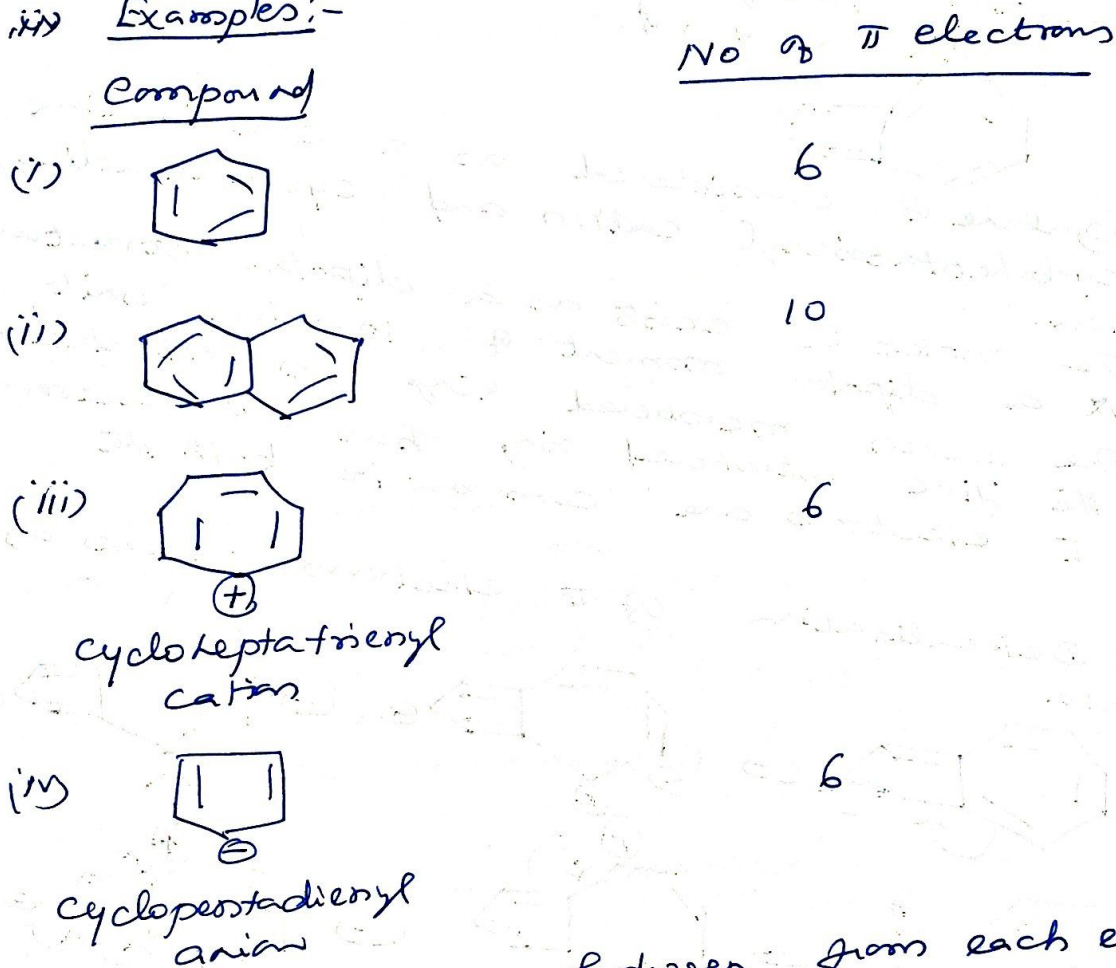 Examples:-
Compound
No of π electrons
(i) 6
(ii) 10
(iii) 6
+
cycloheptatrienyl
cation
(iv) 6
−
cyclopentadienyl
anion
from each